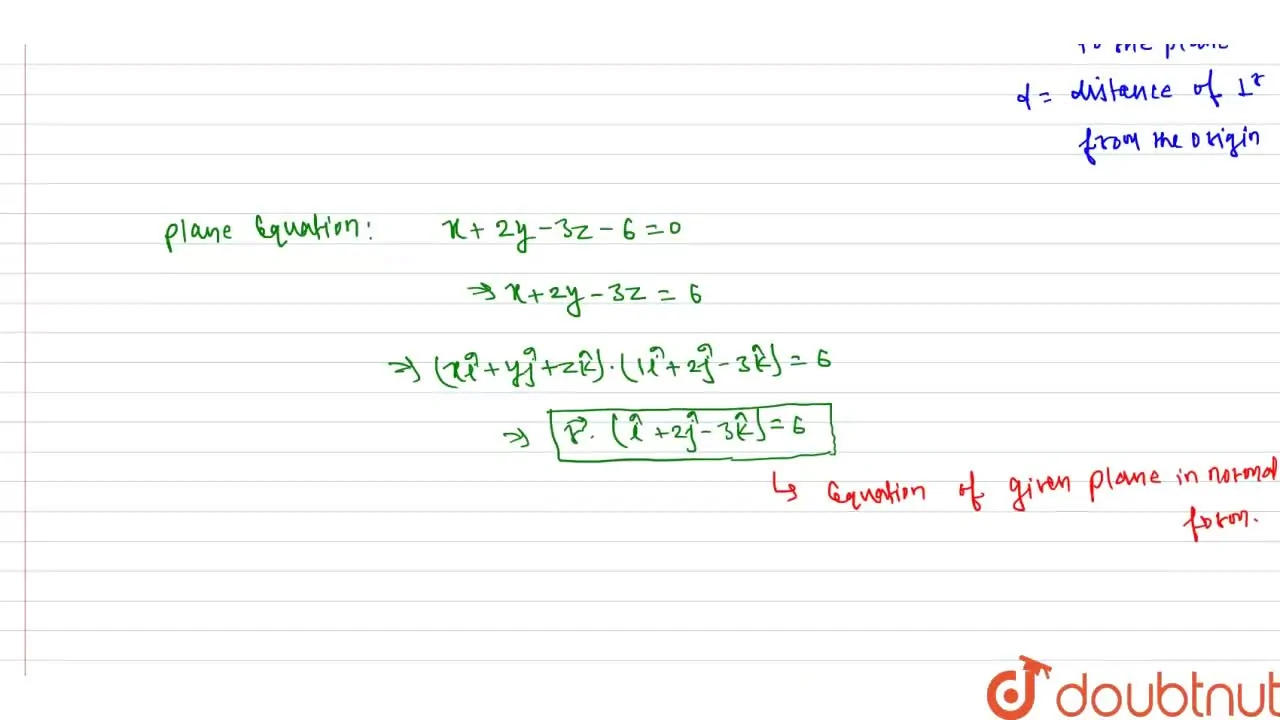 to the plane
d = distance of ⊥r
from the origin
plane Equation: x + 2y - 3z - 6 = 0
⇒ x + 2y - 3z = 6
⇒ (xî + yĵ + zk̂) · (1î + 2ĵ - 3k̂) = 6
⇒ r⃗ · (î + 2ĵ - 3k̂) = 6
↳ Equation of given plane in normal
form.
doubtnut